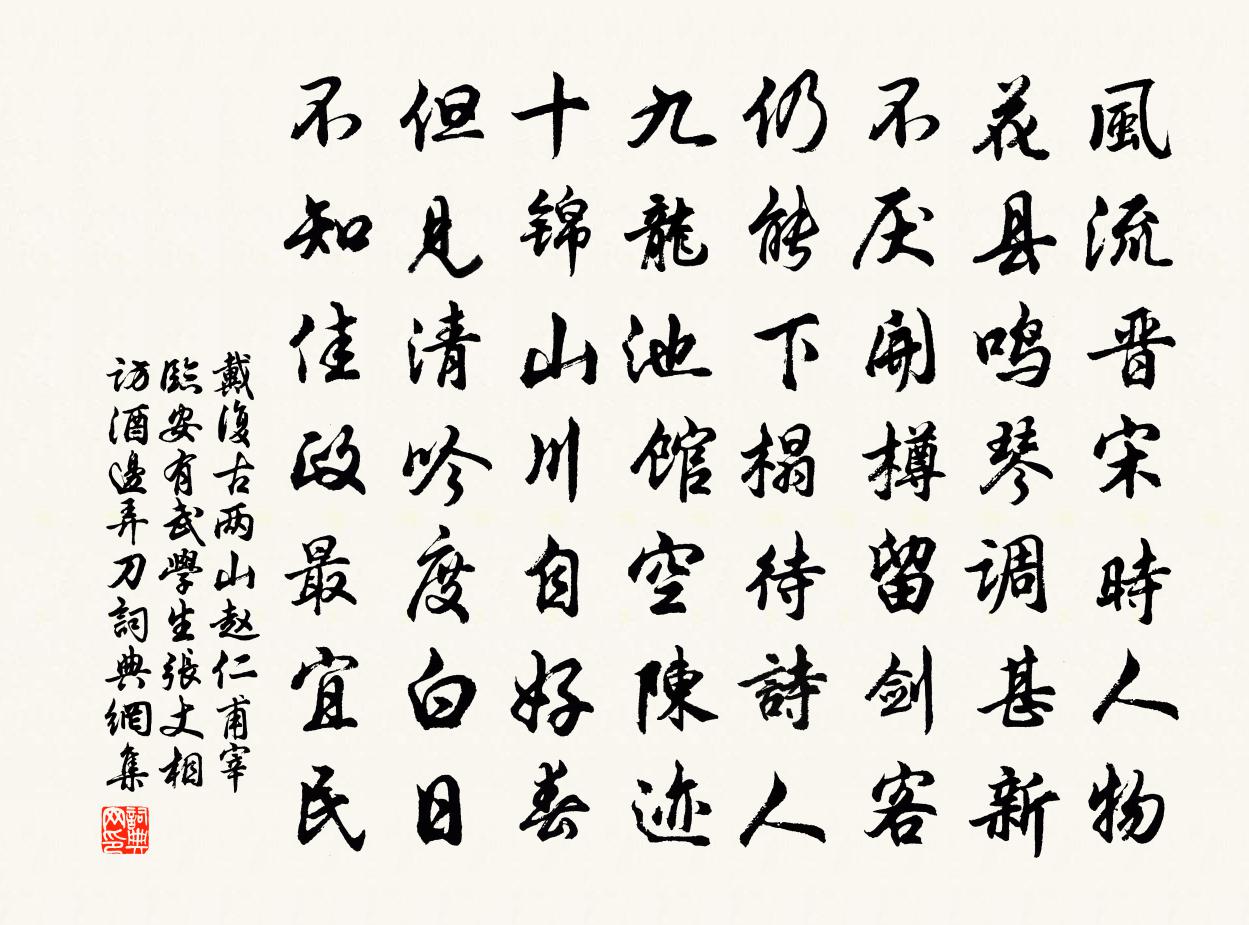 風流晋宋時人物
花县鳴琴调甚新
不厌開樽留剑客
仍能下榻待詩人
九龍池馆空陳迹
十锦山川自好春
但見清吟度白日
不知佳政最宜民
戴復古两山赵仁甫宰
臨安有武學生張丈相
访酒邊弄刀詞典網集
詞典
网印